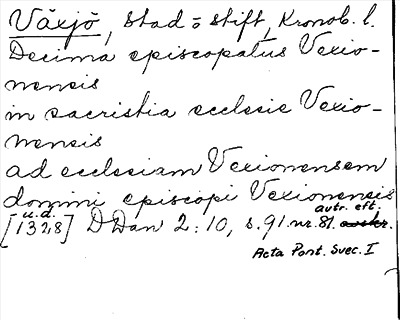 Växjö, stad o stift, Kronob. l.
Decima episcopatus Vexio-
nensis
in sacristia ecclesie Vexio-
nensis
ad ecclesiam Vexionensem
domini episcopi Vexionensis
u.d. avtr. eft.
[1328] DDan 2:10, s.91 nr. 81.
Acta Pont. Svec. I